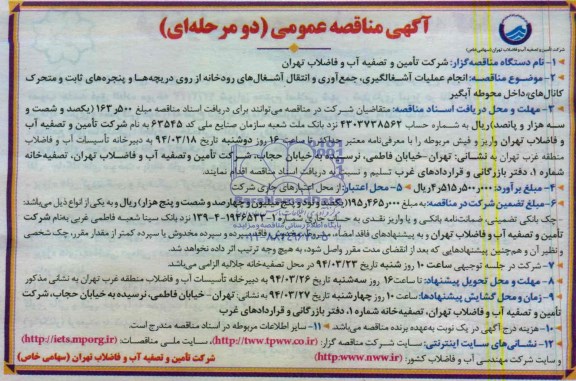 آگهی مناقصه عمومی (دو مرحله‌ای)
شرکت تأمین و تصفیه آب و فاضلاب تهران (سهامی خاص)
۱- نام دستگاه مناقصه‌گزار: شرکت تأمین و تصفیه آب و فاضلاب تهران
۲- موضوع مناقصه: انجام عملیات آشغالگیری، جمع‌آوری و انتقال آشغال‌های رودخانه از روی دریچه‌ها و پنجره‌های ثابت و متحرک
کانال‌های داخل محوطه آبگیر
۳- مهلت و محل دریافت اسناد مناقصه: متقاضیان شرکت در مناقصه می‌توانند برای دریافت اسناد مناقصه مبلغ ۱۶۳٫۵۰۰ (یکصد و شصت و
سه هزار و پانصد) ریال به شماره حساب ۴۳۰۳۷۳۸۵۶۲ نزد بانک ملت شعبه سازمان صنایع ملی کد ۶۳۵۴۵ به نام شرکت تأمین و تصفیه آب
و فاضلاب تهران واریز و فیش مربوطه را با معرفی‌نامه معتبر حداکثر تا ساعت ۱۶ روز دوشنبه تاریخ ۹۴/۰۳/۱۸ به دبیرخانه تأسیسات آب و فاضلاب
منطقه غرب تهران به نشانی: تهران- خیابان فاطمی، نرسیده به خیابان حجاب، شرکت تأمین و تصفیه آب و فاضلاب تهران، تصفیه‌خانه
شماره ۱، دفتر بازرگانی و قراردادهای غرب تسلیم و نسبت به دریافت اسناد مناقصه اقدام نمایند.
۴- مبلغ برآورد: ۴٫۵۱۵٫۵۰۰٫۰۰۰ ریال ۵- محل اعتبار: از محل اعتبارهای جاری شرکت
۶- مبلغ تضمین شرکت در مناقصه: به مبلغ ۱۹۵٫۴۶۵٫۰۰۰ (یکصد و نود و پنج میلیون و چهارصد و شصت و پنج هزار) ریال و به یکی از انواع ذیل می‌باشد:
چک بانکی تضمینی، ضمانت‌نامه بانکی و یا واریز نقدی به حساب جاری شماره ۱-۱۹۴۶۵۳۳-۴-۱۳۹ نزد بانک سینا شعبه فاطمی غربی به‌نام شرکت
تأمین و تصفیه آب و فاضلاب تهران و به پیشنهادهای فاقد امضاء، مشروط، مخدوش و فاقد سپرده و سپرده مخدوش یا سپرده کمتر از مقدار مقرر، چک شخصی
و نظیر آن و هم‌چنین پیشنهادهایی که بعد از انقضای مدت مقرر واصل شود، به هیچ وجه ترتیب اثر داده نخواهد شد.
۷- شرکت در جلسه توجیهی ساعت ۱۰ روز شنبه تاریخ ۹۴/۰۳/۲۳ در محل تصفیه‌خانه جلالیه الزامی می‌باشد.
۸- مهلت و محل تحویل پیشنهاد: تا ساعت ۱۶ روز سه‌شنبه تاریخ ۹۴/۰۳/۲۶ به دبیرخانه تأسیسات آب و فاضلاب منطقه غرب تهران به نشانی مذکور
۹- زمان و محل گشایش پیشنهادها: ساعت ۱۰ روز چهارشنبه تاریخ ۹۴/۰۳/۲۷ به نشانی: تهران- خیابان فاطمی، نرسیده به خیابان حجاب، شرکت
تأمین و تصفیه آب و فاضلاب تهران، تصفیه‌خانه شماره ۱، دفتر بازرگانی و قراردادهای غرب
۱۰- هزینه درج آگهی در یک نوبت به‌عهده برنده مناقصه می‌باشد. ۱۱- سایر اطلاعات مربوطه در اسناد مناقصه مندرج است.
۱۲- نشانی‌های سایت اینترنتی: سایت شرکت مناقصه گزار: (http://tww.tpww.co.ir)، سایت ملی مناقصات: (http://iets.mporg.ir)
و سایت شرکت مهندسی آب و فاضلاب کشور: (http:www.nww.ir)
شرکت تأمین و تصفیه آب و فاضلاب تهران (سهامی خاص)